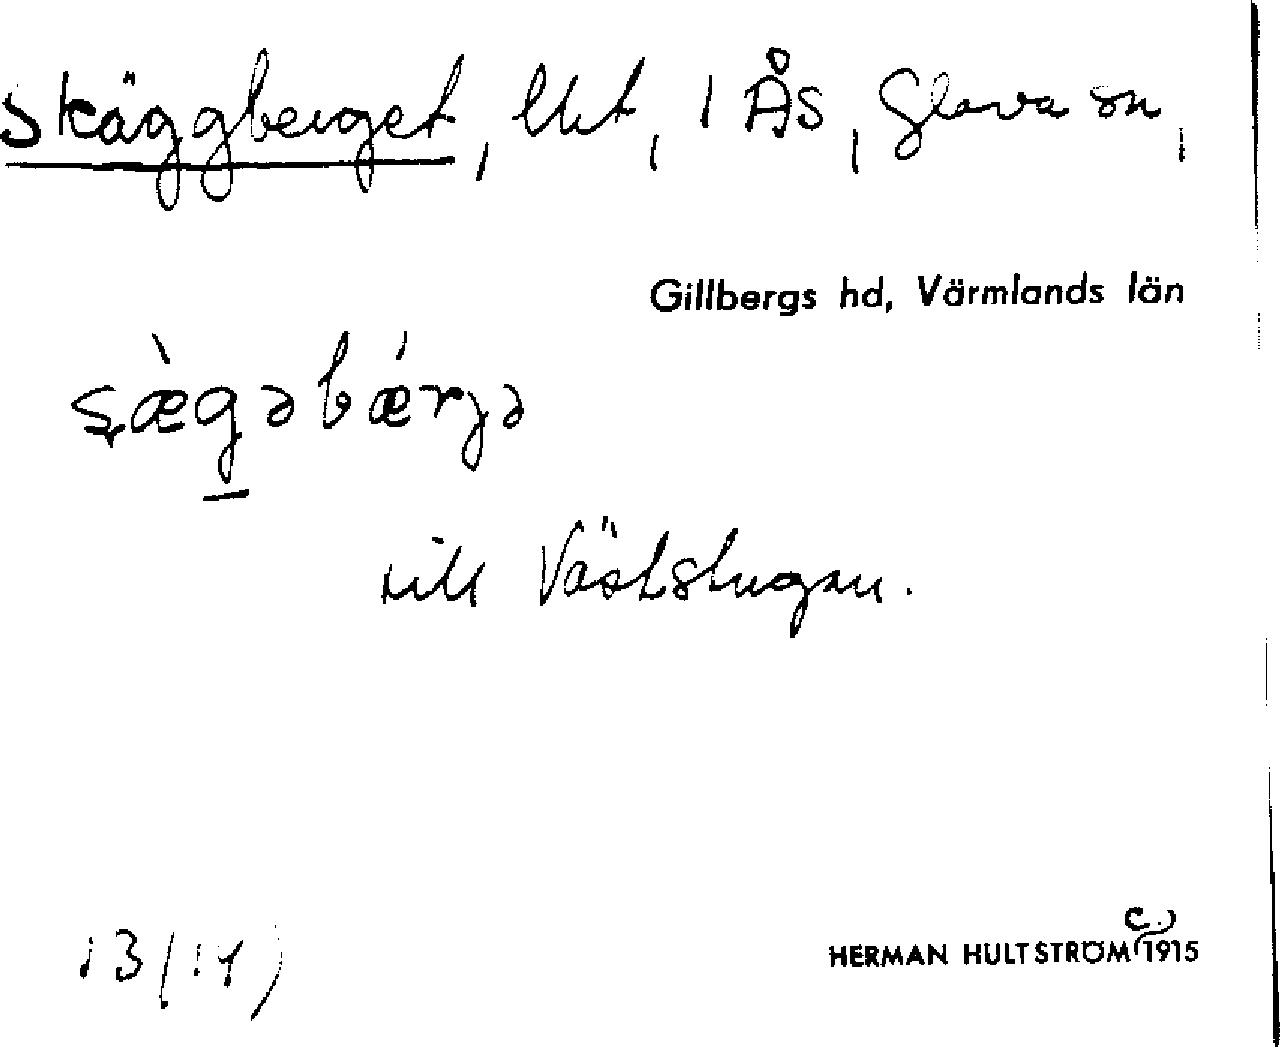 Skäggberget, lht, i Ås, Glava sn,
Gillbergs hd, Värmlands län
ʂæ̀g̲əbǽrjə
till Väststugan.
HERMAN HULTSTRÖM C:) 1915